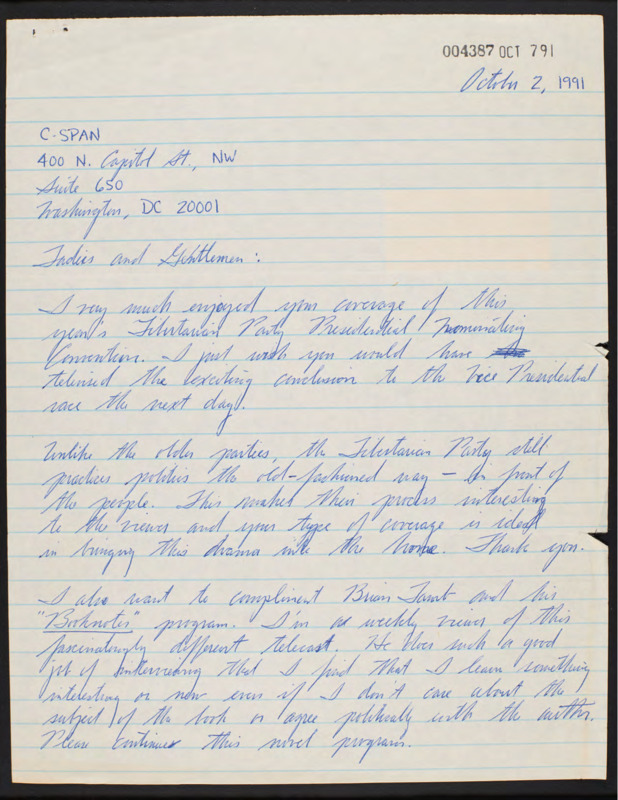 004387 OCT 7 91
October 2, 1991
C-SPAN
400 N. Capitol St., NW
Suite 650
Washington, DC 20001
Ladies and Gentlemen:
I very much enjoyed your coverage of this
year's Libertarian Party Presidential Nominating
Convention. I just wish you would have
televised the exciting conclusion to the Vice Presidential
race the next day.
Unlike the older parties, the Libertarian Party still
practices politics the old-fashioned way - in front of
the people. This makes their process interesting
to the viewer and your type of coverage is ideal
in bringing this drama into the home. Thank you.
I also want to compliment Brian Lamb and his
"Booknotes" program. I'm a weekly viewer of this
fascinatingly different telecast. He does such a good
job of interviewing that I find that I learn something
interesting or new even if I don't care about the
subject of the book or agree politically with the author.
Please continue this novel program.